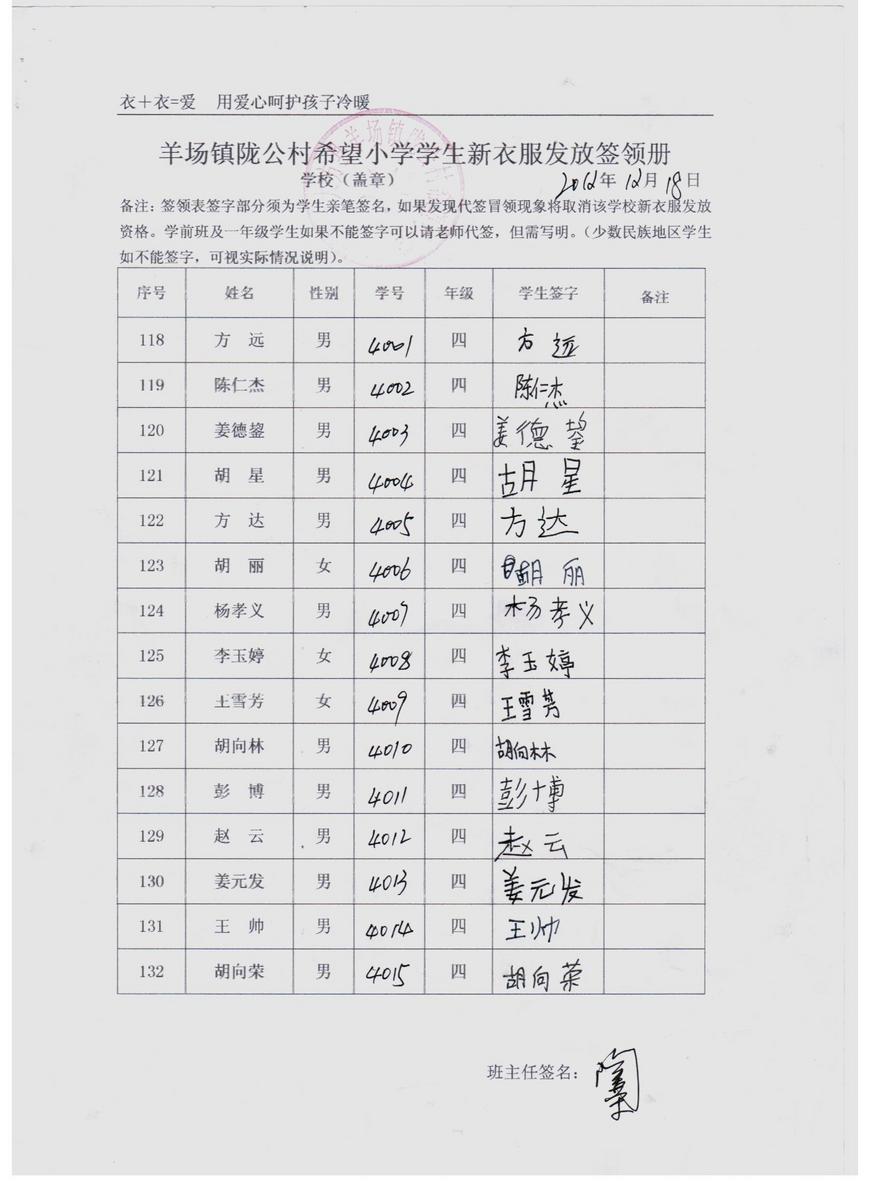 衣+衣=爱 用爱心呵护孩子冷暖
羊场镇陇公村希望小学学生新衣服发放签领册
学校（盖章） 2012年12月18日
备注：签领表签字部分须为学生亲笔签名，如果发现代签冒领现象将取消该学校新衣服发放
资格。学前班及一年级学生如果不能签字可以请老师代签，但需写明。（少数民族地区学生
如不能签字，可视实际情况说明）。
序号 姓名 性别 学号 年级 学生签字 备注
118 方 远 男 4001 四 方 远
119 陈仁杰 男 4002 四 陈仁杰
120 姜德鋆 男 4003 四 姜德鋆
121 胡 星 男 4004 四 胡 星
122 方 达 男 4005 四 方达
123 胡 丽 女 4006 四 胡 丽
124 杨孝义 男 4007 四 杨孝义
125 李玉婷 女 4008 四 李玉婷
126 王雪芳 女 4009 四 王雪芳
127 胡向林 男 4010 四 胡向林
128 彭 博 男 4011 四 彭博
129 赵 云 男 4012 四 赵云
130 姜元发 男 4013 四 姜元发
131 王 帅 男 4014 四 王帅
132 胡向荣 男 4015 四 胡向荣
班主任签名：